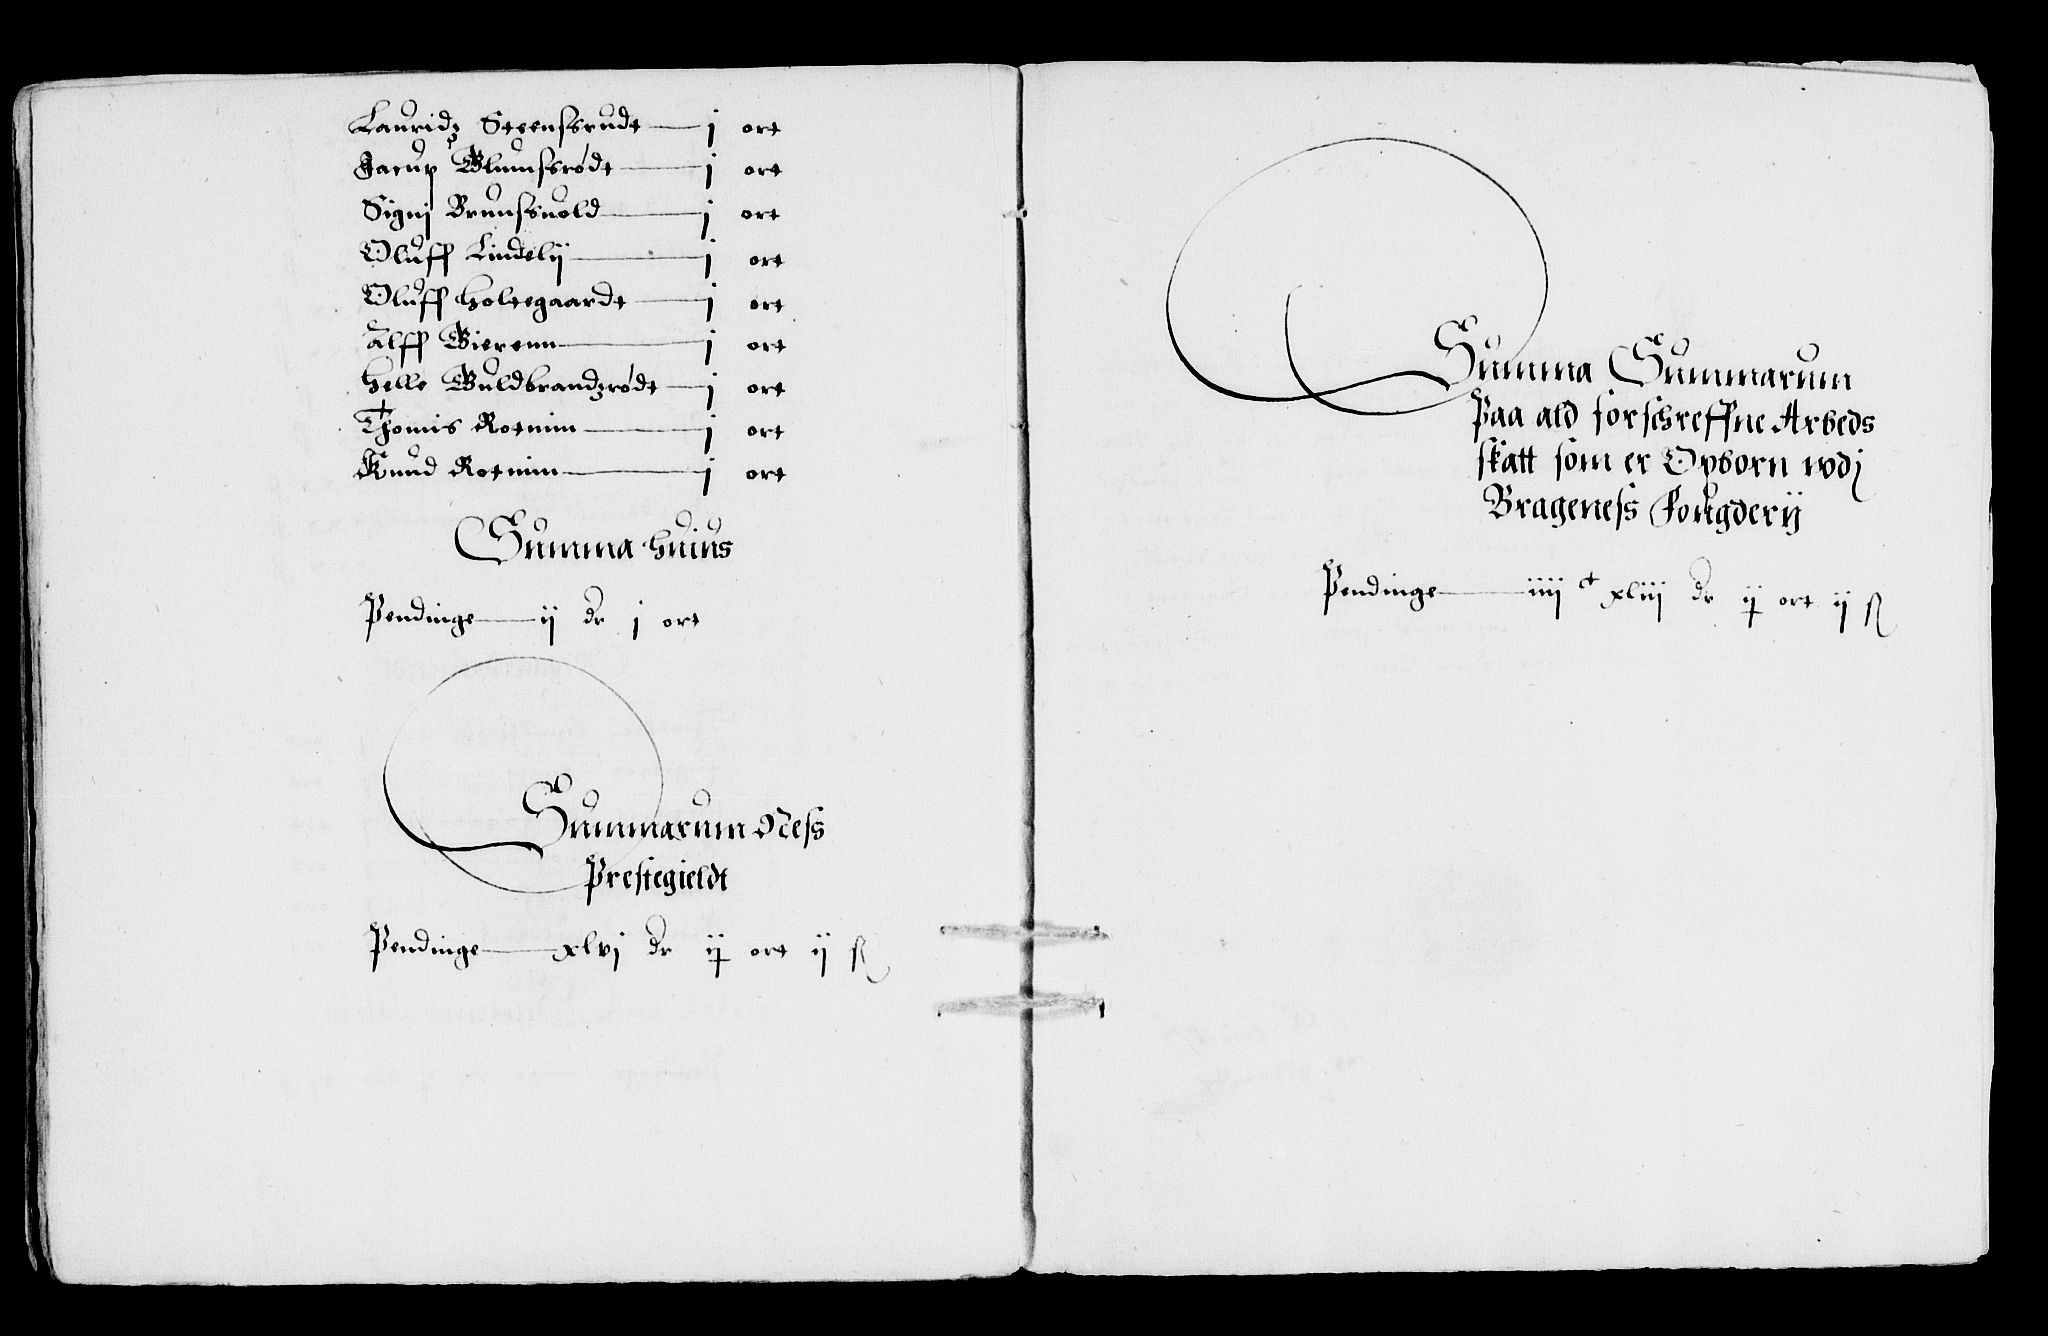 Lauridz Steenssrudt j ort
Jacup Blumssrødt j ort
Signj Brunssuold j ort
Oluff Lindelij j ort
Oluff Holtegaardt j ort
Alff Bierenn j ort
Helle Guldbrandzrødt j ort
Thomis Rotnim j ort
Knud Rotnim j ort
Summa huius
Pendinge ij dr j ort
Summarum Ness
Prestegieldt
Pendinge xlvj dr ij ort ij ß
Summa Summarum
Paa ald forschreffne Arbeds
skatt som er Opborn wdj
Brageness Fougderij
Pendinge iiij c xliij dr ij ort ij ß